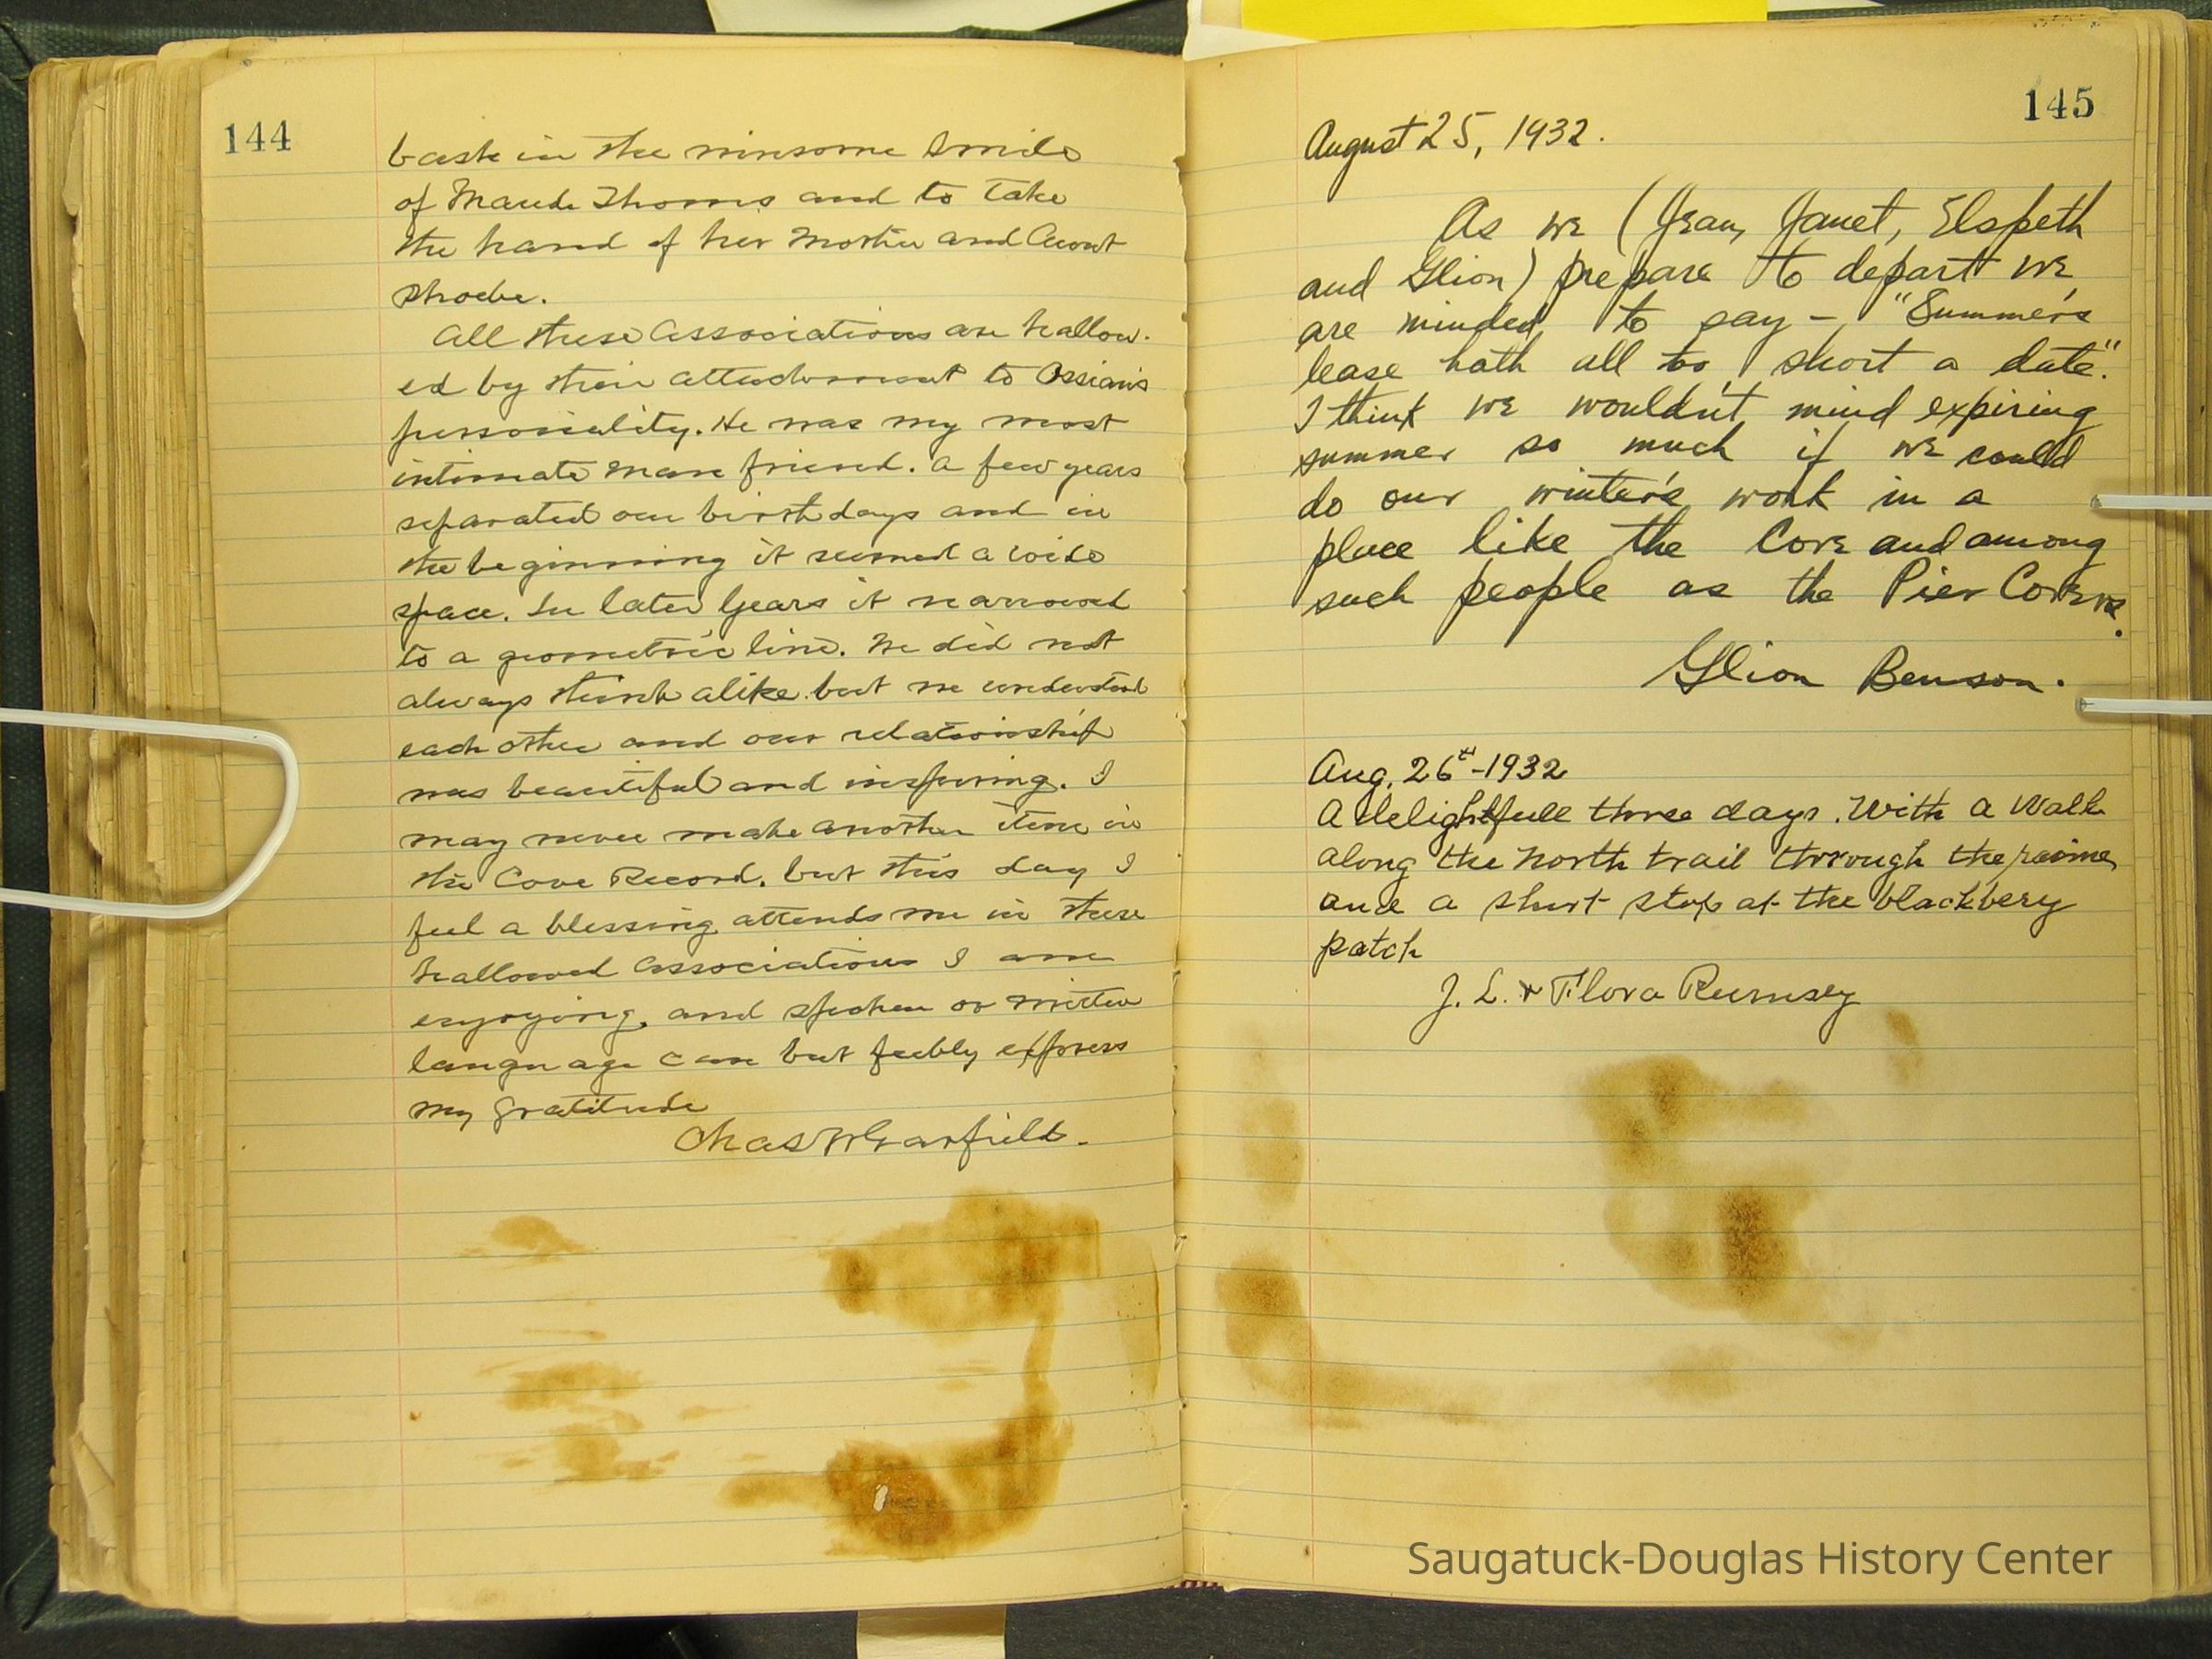 144
bask in the winsome smile
of Maude Thoms and to take
the hand of her Mother and Aunt
Phoebe.
All these associations are hallow-
ed by their attachment to Ossian's
personality. He was my most
intimate man friend. A few years
separated our birthdays and in
the beginning it seemed a wide
space. In later years it narrowed
to a geometric line. We did not
always think alike but we understood
each other and our relationship
was beautiful and inspiring. I
may never make another item in
the Cove Record, but this day I
feel a blessing attends me in these
hallowed associations I am
enjoying, and spoken or written
language can but feebly express
my gratitude
Chas W Garfield.
145
August 25, 1932.
As we (Jean, Janet, Elspeth
and Glion) prepare to depart we
are minded to say - "Summer's
lease hath all too short a date".
I think we wouldn't mind expiring
summer so much if we could
do our winter's work in a
place like the Cove and among
such people as the Pier Covers.
Glion Benson.
Aug. 26th - 1932
A delightfull three days. With a walk
along the north trail through the
and a short stop at the blackbery
patch
J. L. & Flora Rumsey
Saugatuck-Douglas History Center